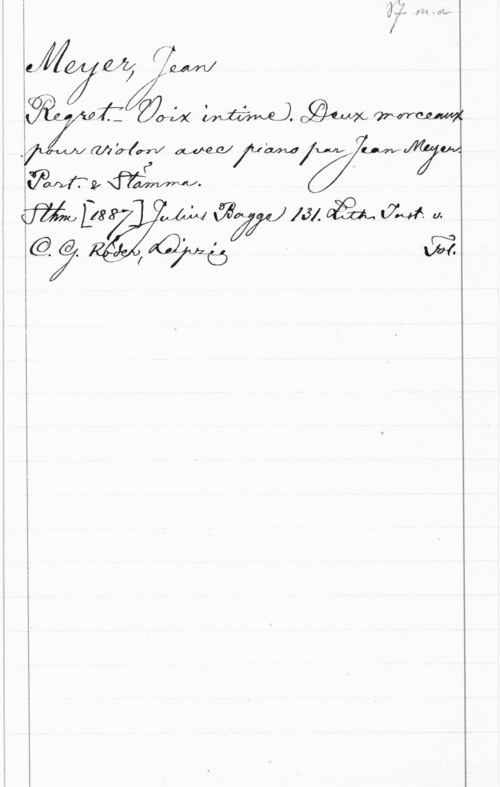 87 m.a
Meyer, Jean
Regret. _ Voix intime). Deux morceaux
pour violon avec piano par Jean Meyer.
Part. & Stämma.
Sthm [1887] Julius Bagge 131. Lith. Inst. v.
C. G. Röder, Leipzig Fol.